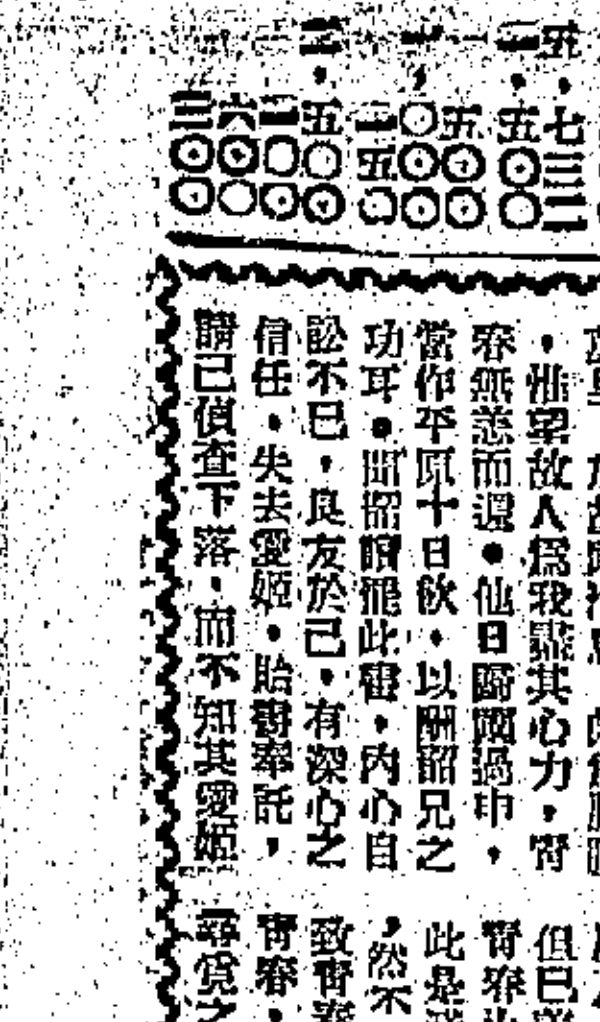 五・七三二
二・五〇〇
五〇〇
一・〇〇〇
二五〇
二・五〇〇
一〇〇
六〇〇
三〇〇
，惟望故人爲我盡其心力，靑
春無恙而還●他日歸國過申，
當作平原十日飲，以酬韶兄之
功耳●聞韶讀罷此書，內心自
訟不已，良友於己，有深心之
信任，失去愛姬，貽書奉託，
請已偵查下落，而不知其愛姬
但已
靑春
此是
，然不
致靑春
靑春，
尋覓之